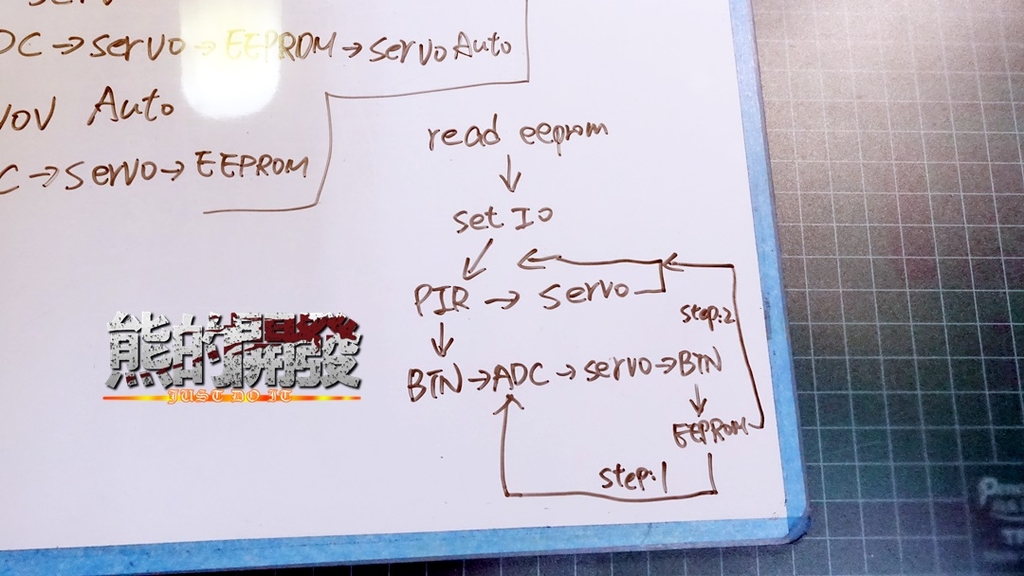 servo → EEPROM → servo Auto
Auto
→ servo → EEPROM
read eeprom
↓
set IO
↙
PIR → servo
step:2
↓
BTN → ADC → servo → BTN
↓
EEPROM
step:1
熊的開發
JUST DO IT